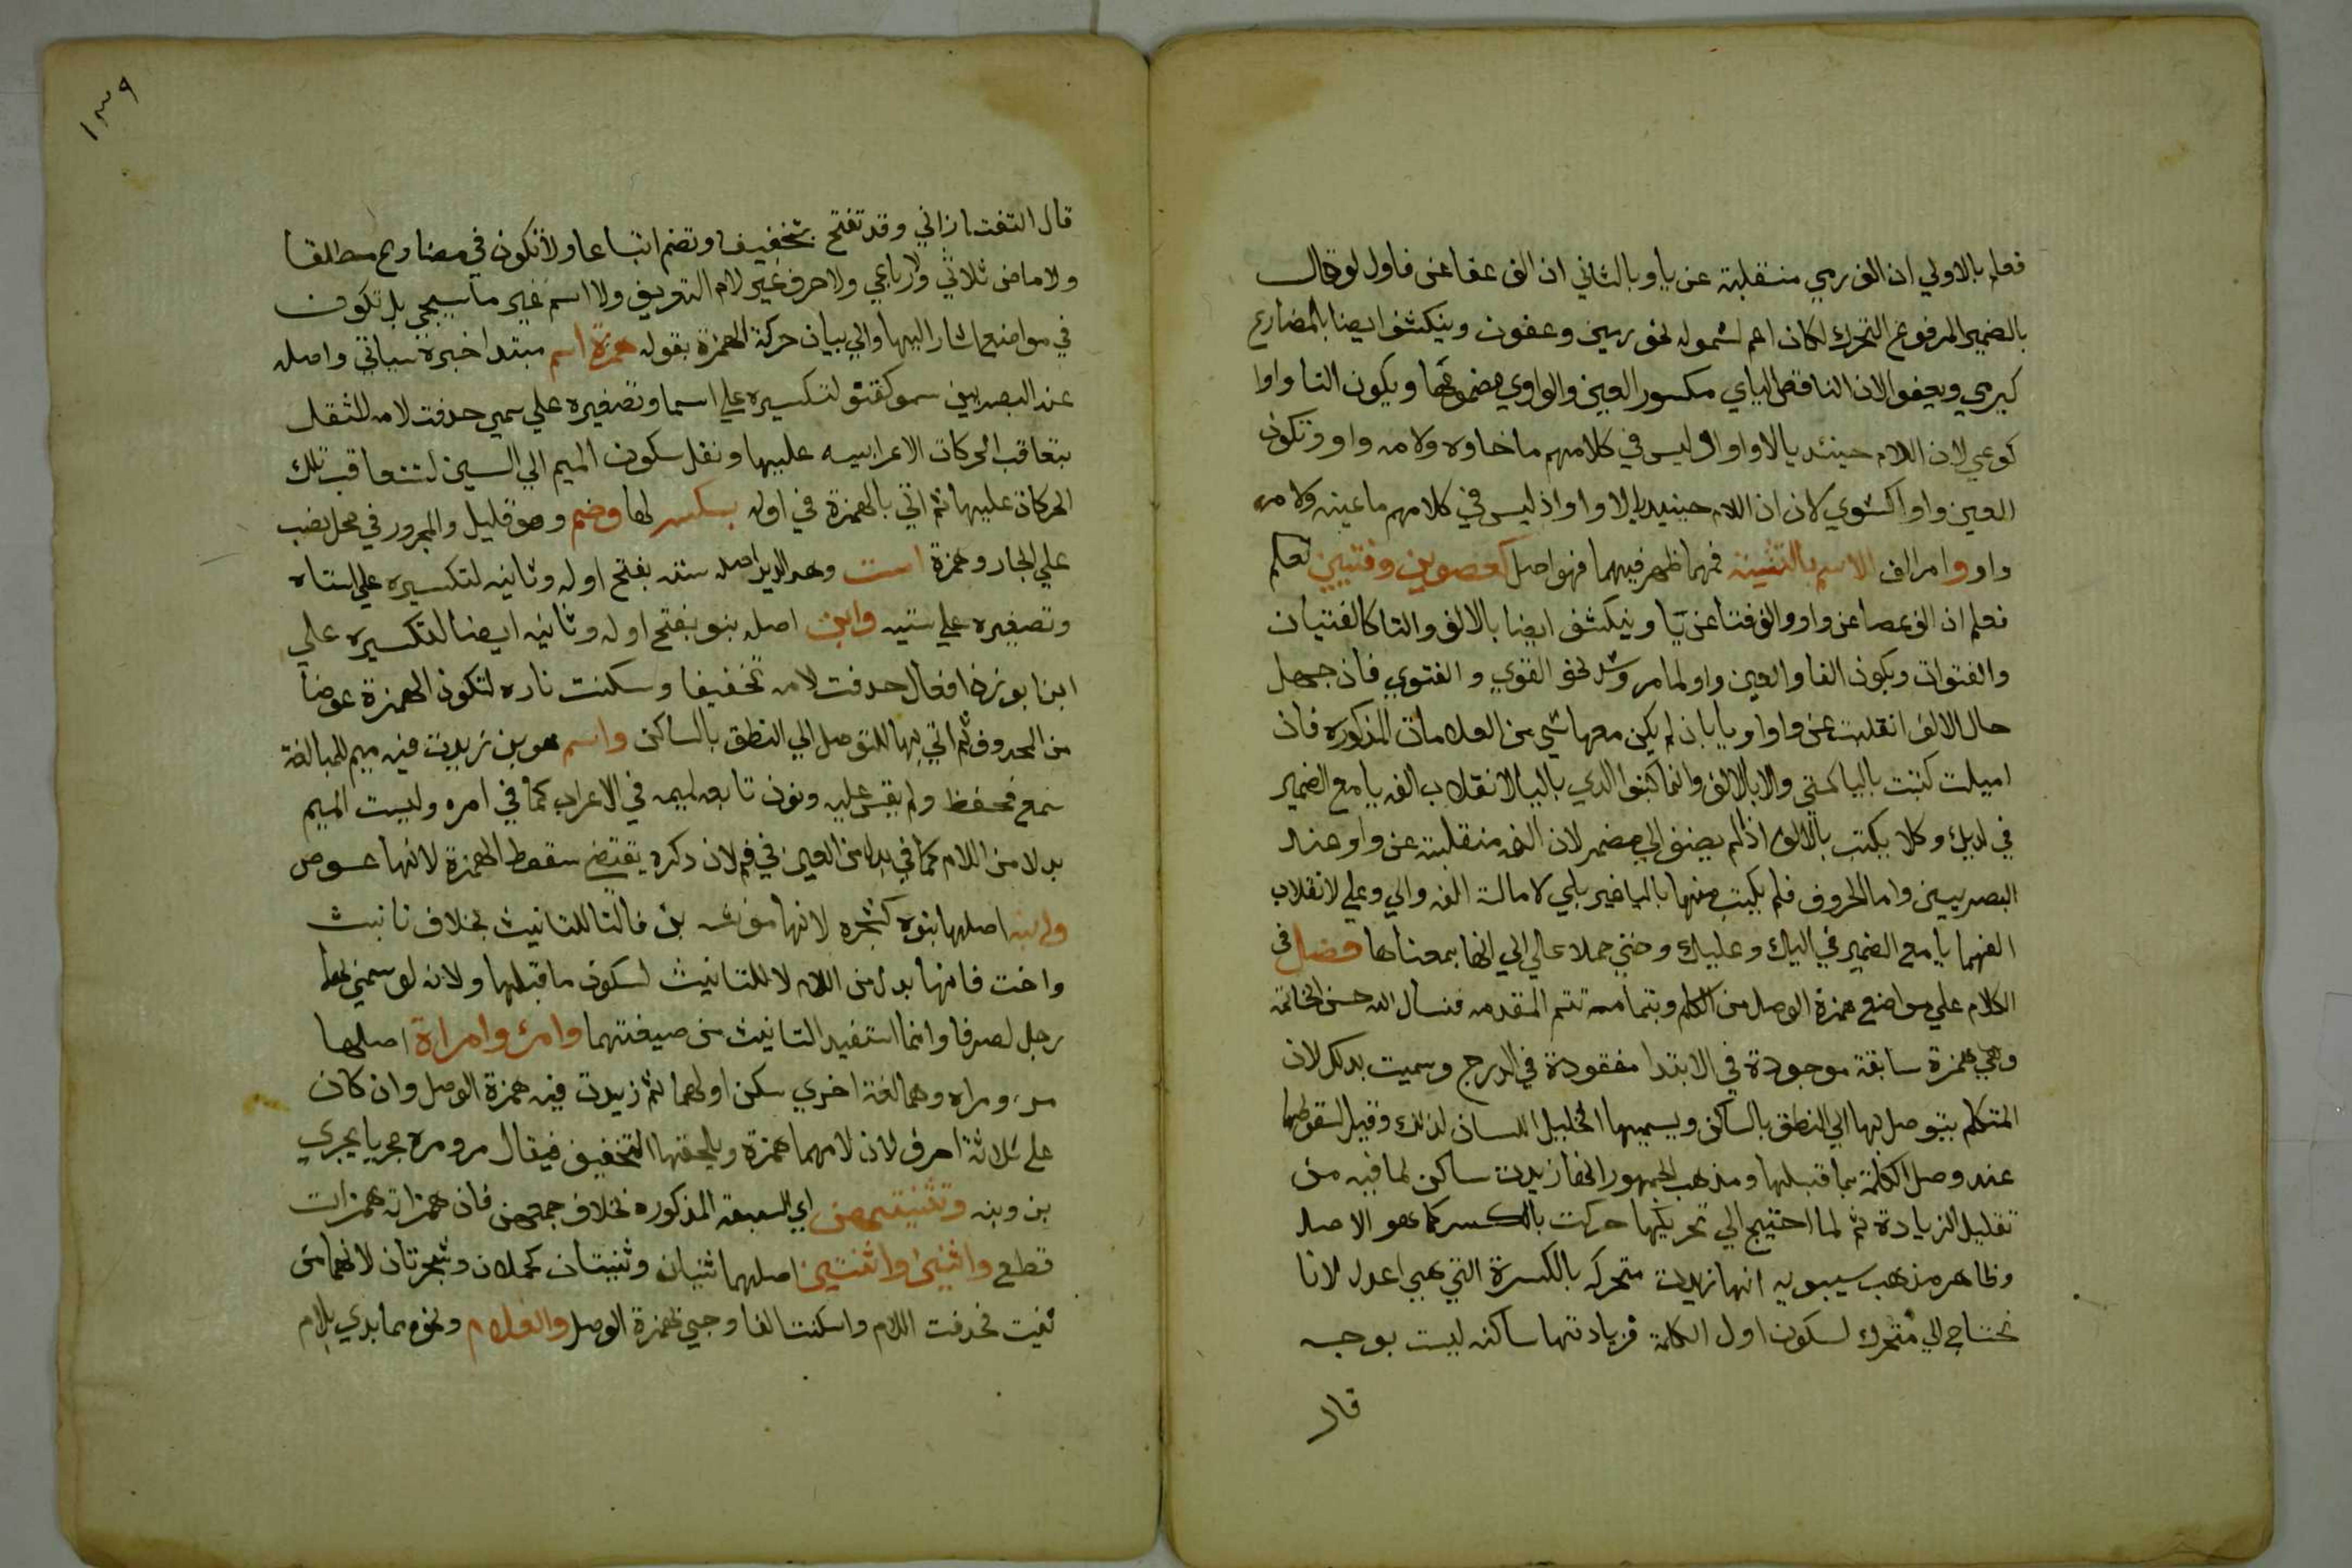 فعلم بالاولي ان الف رمي منقلبة عن يا وبالثاني ان الف عفا عن فاول لو قال
بالضمير المرفوع المتحرك لكان اعم لشموله نحو رمين وعفون وينكشف ايضا بالمضارع
كيرمي ويعفو لان الناقص الياي مكسور العين والواوي مضمومها ويكون الفا واوا
كوعي لان اللام حينئد يا لا واوا اذ ليس في كلامهم ما فاوه ولامه واو وتكون
العين واوا كشوي لان اللام حينيد يا لا واوا اذ ليس في كلامهم ما عينه ولامه
واو وامر الف الاسم بالتثنية فمهما ظهر فيهما فهو اصل كعصوين وفتيين تعلم
فعلم ان الف عصا عن واو والف فتا عن يا وينكشف ايضا بالالف والتا كالفتيات
والفتوات وبكون الفا والعين واو لما مر وشد نحو القوي والفتوي فان جهل
حال الالف انقلبت عن واو او يا بان لم يكن معها شي من العلامات المذكوره فان
اميلت كتبت باليا كمتي والا بالالف وانما كتبوا لدي باليا لانقلاب الفه يا مع الضمير
في لديك وكلا يكتب بالالف اذا لم يضف الي مضمر لان الفه منقلبة عن واو عند
البصريين واما الحروف فلم يكتب منها باليا غير بلي لامالة الفه والي وعلي لانقلاب
الفهما يا مع الضمير في اليك وعليك وحتي حملا علي الي لانها بمعناها فصل في
الكلام علي مواضع همزة الوصل من الكلم وبتمامه تتم المقدمه فنسال الله حسن الخاتمه
وهي همزة سابقة موجودة في الابتدا مفقودة في الدرج وسميت بدلك لان
المتكلم يتوصل بها الي النطق بالساكن ويسميها الخليل سلم اللسان لذلك وقيل لسقوطها
عند وصل الكلمة بما قبلها ومذهب الجمهور انها زيدت ساكن لما فيه من
تقليل الزيادة ثم لما احتيج الي تحريكها حركت بالكسر كما هو الاصل
وظاهر مذهب سيبويه انها زيدت متحركه بالكسرة التي هي اعدل لانا
نحتاج الي متحرك لسكون اول الكلمة فزيادتها ساكنه ليست بوجه
قال
١٣٩
قال التفتازاني وقد تفتح تخفيفا وتضم اتباعا ولا تكون في مضارع مطلقا
ولا ماض ثلاثي ولا رباعي ولا حرف غير لام التعريف ولا اسم غير ما سيجي بل تكون
في مواضع اشار اليها والي بيان حركة الهمزة بقوله همزة اسم مبتدا خبره سياتي واصله
عند البصريين سمو كقنو لتكسيره علي اسما وتصغيره علي سمي حدفت لامه للثقل
بتعاقب الحركات الاعرابيه عليها ونقل سكون الميم الي السين لتتعاقب تلك
الحركات عليها ثم اتي بالهمزة في اوله بكسر لها وضم وهو قليل والمجرور في محل نصب
علي الجار وهمزة است وهو الدبر اصله سته بفتح اوله وثانيه لتكسيره علي استاه
وتصغيره علي ستيه وابن اصله بنو بفتح اوله وثانيه ايضا لتكسيره علي
ابنا بوزن افعال حدفت لامه تخفيفا وسكنت ناره لتكون الهمزة عوضا
من المحدوف ثم اتي بها للتوصل الي النطق بالساكن وابنم هو بن زيدت فيه ميم للمبالغة
سمع فحفظ ولم يقس عليه ونون تابعه لميمه في الاعراب كما في امره وليست الميم
بدلا من اللام كما في بدلا من العين في فم لان دكره يقتضي سقوط الهمزة لانها عوض
وابنه اصلها بنوه كشجره لانها مونث بن فالتا للتانيث بخلاف تا بنت
واخت فانها بدل من اللام لا للتانيث لسكون ما قبلها ولانه لو سمي بهما
رجل لصرفا وانما استفيد التانيث من صيغتهما وامرء وامراة اصلها
مرء ومراه وهما لغة اخري سكن اولهما ثم زيدت فيه همزة الوصل وان كان
علي ثلاثة احرف لان لامهما همزة ويلحقها التخفيف فيقال مر ومره جريا بجري
بن وبنه وتثنيتهن اي السبعه المذكوره بخلاف جمعهن فان همزاته همزات
قطع واثنين واثنتين اصلهما ثنيان وثنيتان كجملان وشجرتان لانهما من
ثنيت فحدفت اللام واسكنت الفا وجي بهمزة الوصل والغلام ونحوه مما بدي بلام